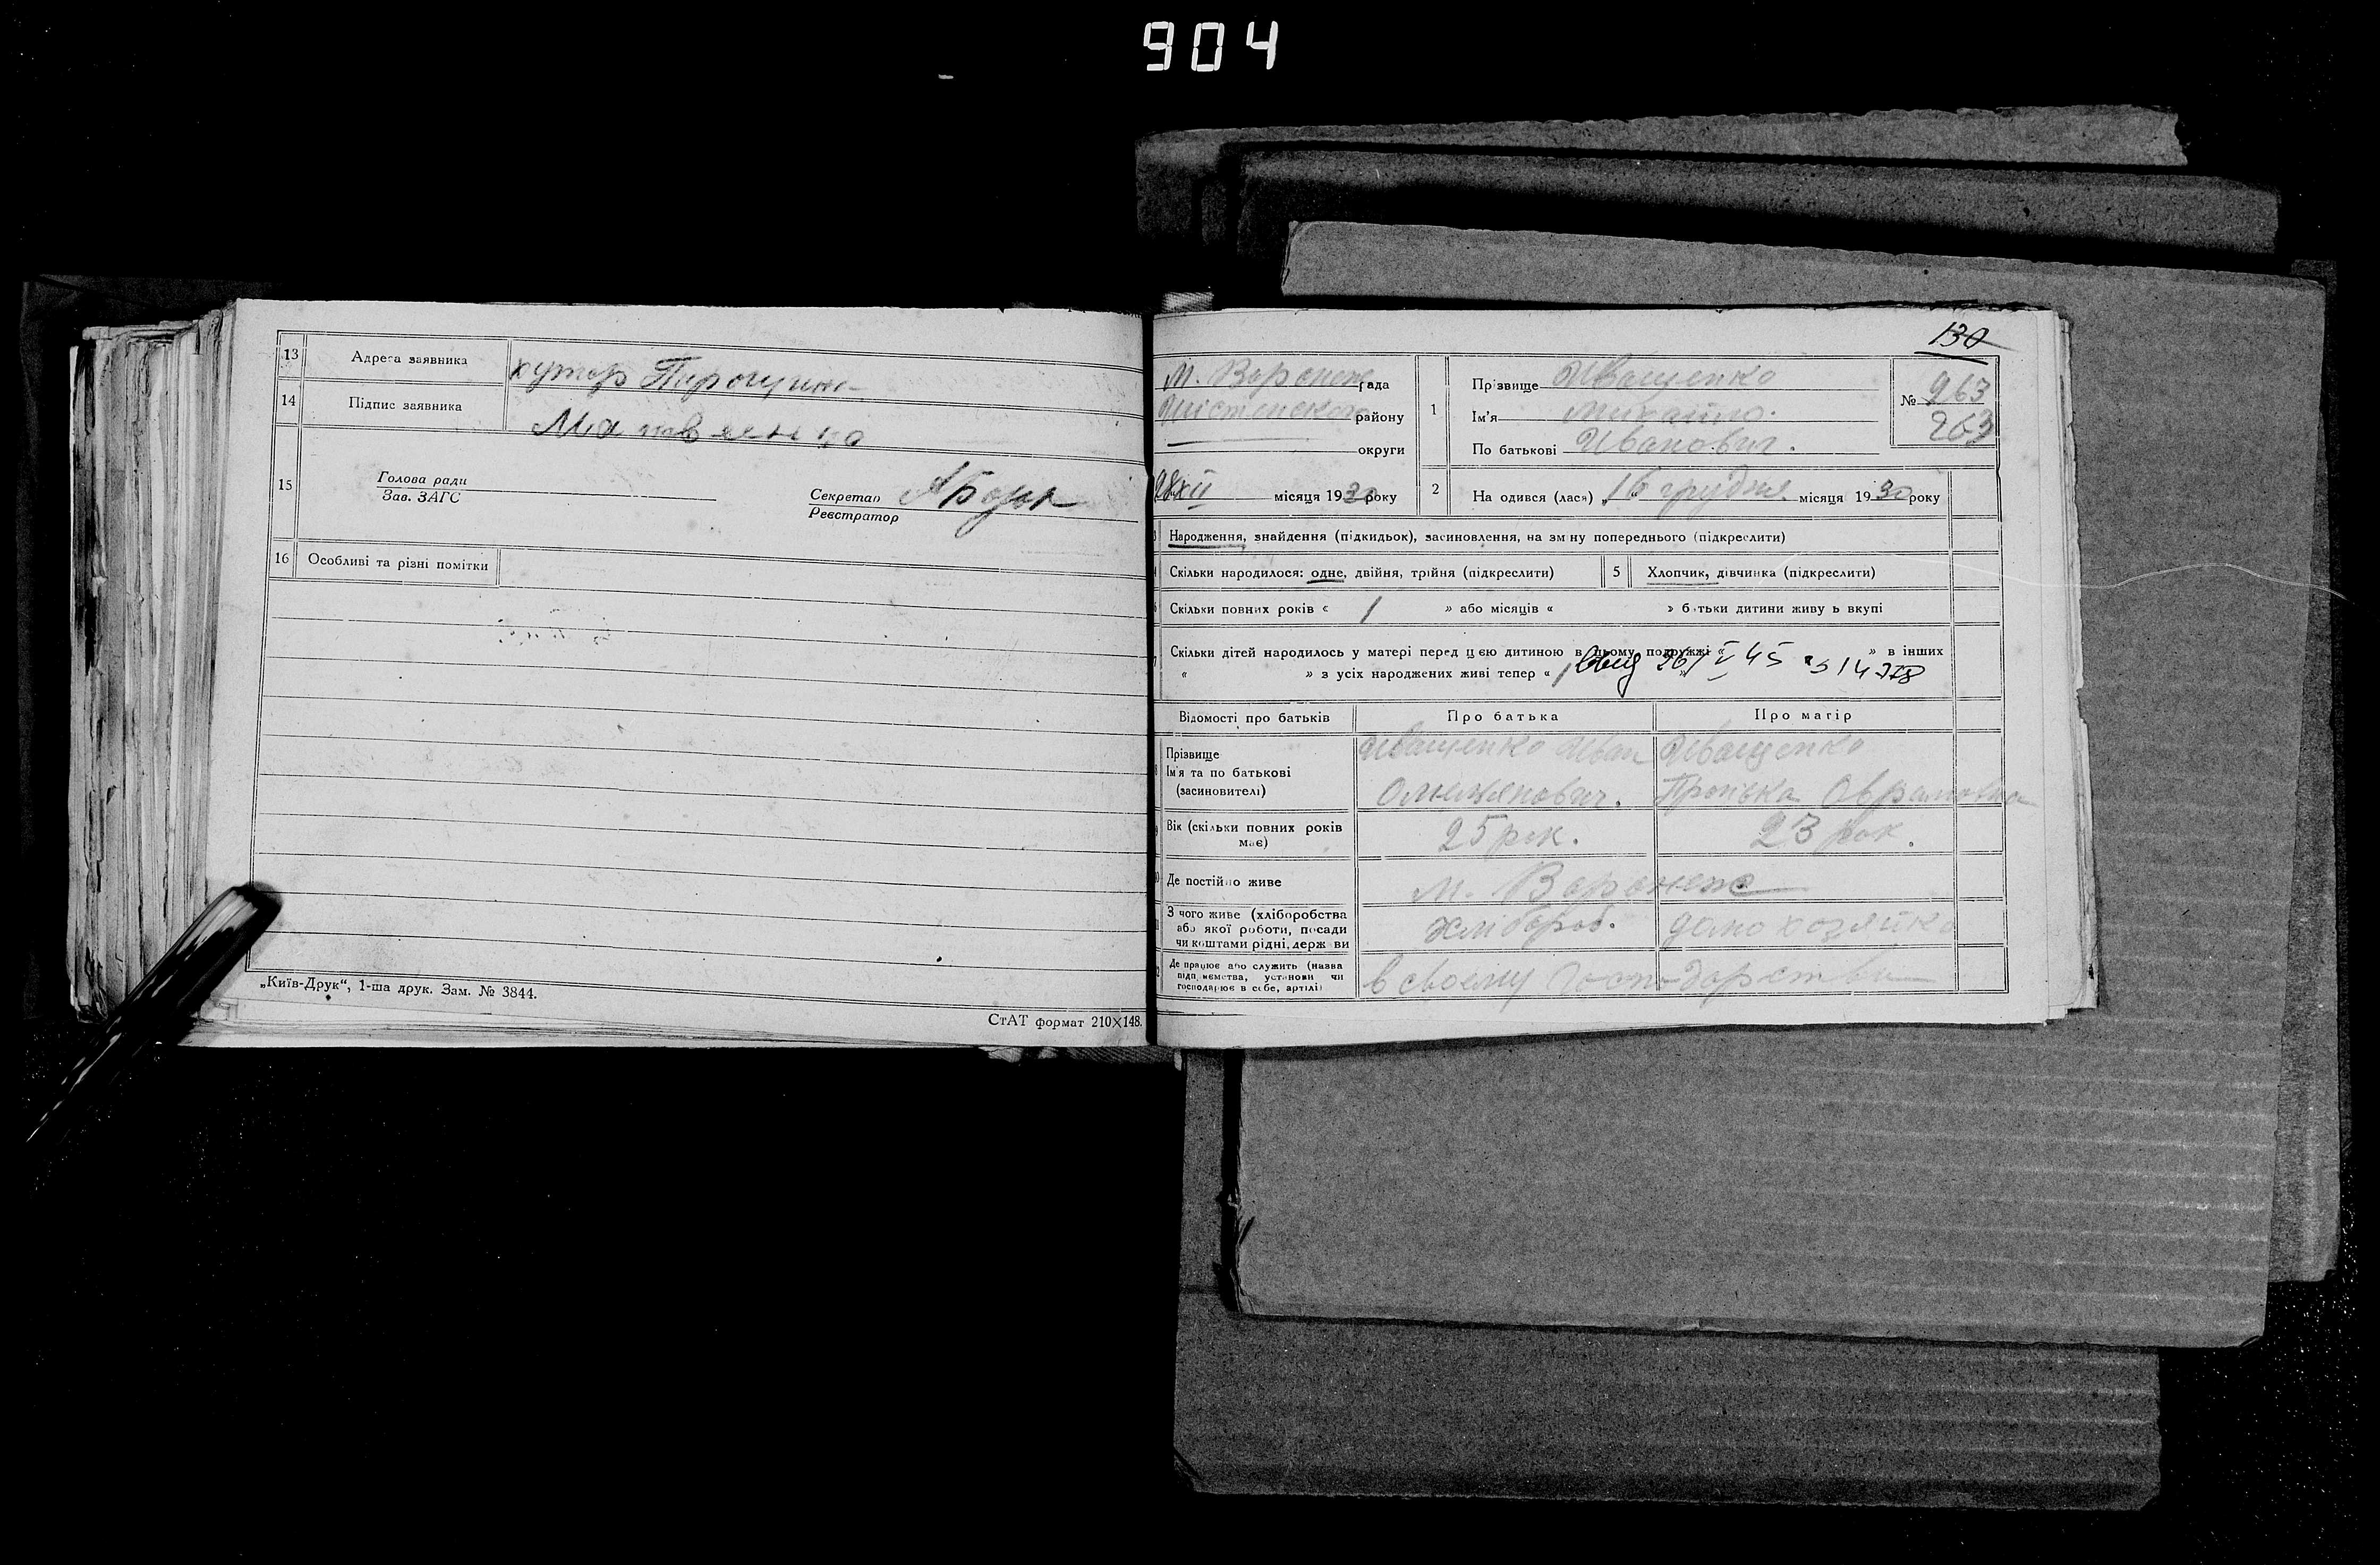 904
13 Адреса заявника хутор Пирогували
14 Підпис заявника Матвеенко
15 Голова ради
Зав. ЗАГС
Секретар
Реєстратор
16 Особливі та різні помітки
„Київ-Друк“, 1-ша друк. Зам. № 3844.
СтАТ формат 210×148.
130
М. Воронеж рада
району
округи
28 XII місяця 1930 року
1 Прізвище Иващенко
Ім’я Михайло.
По батькові Иванович.
№ 263
263
2 На одився (лася) „16 грудня місяця 1930 року
Народження, знайдення (підкидьок), засиновлення, на зміну попереднього (підкреслити)
Скільки народилося: одне, двійня, трійня (підкреслити) 5 Хлопчик, дівчинка (підкреслити)
Скільки повних років « 1 » або місяців « » батьки дитини живуть вкупі
Скільки дітей народилось у матері перед цією дитиною в цьому подружжі « » в інших
« » з усіх народжених живі тепер «
26/V 45
Відомості про батьків Про батька Про матір
Прізвище
Ім’я та по батькові
(засновителі)
Иващенко Иван
Омельянович.
Иващенко
Аврамовна
Вік (скільки повних років
має)
25 рок. 23 рок.
Де постійно живе М. Воронеж
З чого живе (хліборобства
або якої роботи, посади
чи коштами рідні, держави
хлібороб. домохозяйка
Де працює або служить (назва
підприємства, установи чи
господарює в себе, артілі)
в своему господарстви